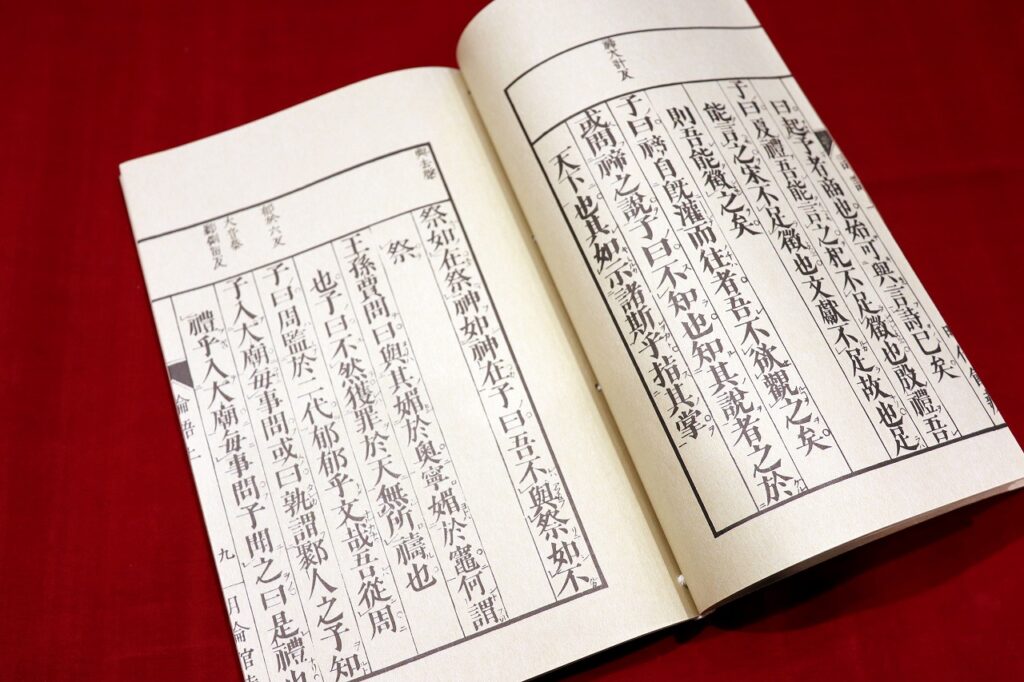 曰起予者商也始可與言詩已矣
子曰夏禮吾能言之杞不足徵也殷禮吾
能言之宋不足徵也文獻不足故也足
則吾能徵之矣
禘大計反
子曰禘自既灌而往者吾不欲觀之矣
或問禘之說子曰不知也知其說者之於
天下也其如示諸斯乎指其掌
與去聲
祭如在祭神如神在子曰吾不與祭如不
祭
王孫賈問曰與其媚於奧寧媚於竈何謂
也子曰不然獲罪於天無所禱也
郁於六反
子曰周監於二代郁郁乎文哉吾從周
大音泰
鄹側留反
子入大廟毎事問或曰孰謂鄹人之子知
禮乎入大廟毎事問子聞之曰是禮也
論語上
九